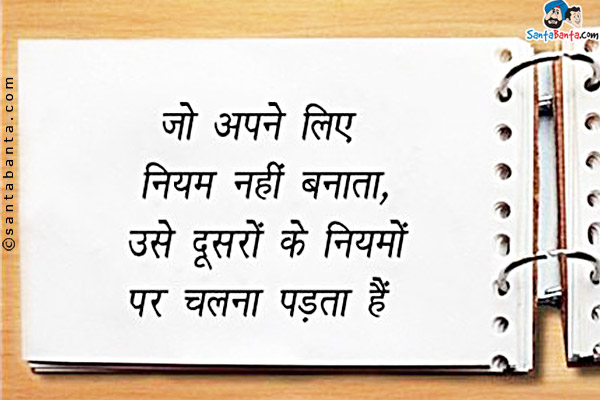 SantaBanta.com
जो अपने लिए
नियम नहीं बनाता,
उसे दूसरों के नियमों
पर चलना पड़ता हैं
©santabanta.com